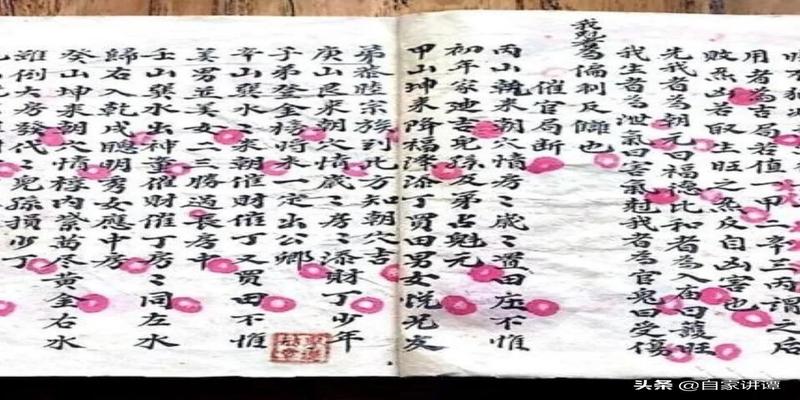 用者為吉局若值一甲二辛三丙謂之后
敗無凶若取生旺之無反自凶害也
先我者為朝元曰福德比和者為入庙曰護旺
我生者為泄氣曰害氣尅我者為官鬼曰受傷
我尅為儔利反讎也
催官局斷
丙山來朝穴情房〻歲〻置田庄不惟
初年家迪吉兒孫及弟占魁元
甲山坤來降福澤添丁買田男女悦兄友
弟恭睦宗族到此方知朝穴吉
庚山艮來朝穴情歲〻房〻添財丁少年
子弟登金榜將來一定出公卿
辛山巽水〻來朝催財催丁又買田不惟
美男並美女二三勝過長房中
壬山巽水出神童催財催丁房〻同左水
歸右入乾戌聰明秀女應中房
癸山坤來朝穴情內紫尽黄金右水
倒大房發代〻兒孫損少丁
头条 @自家讲谭